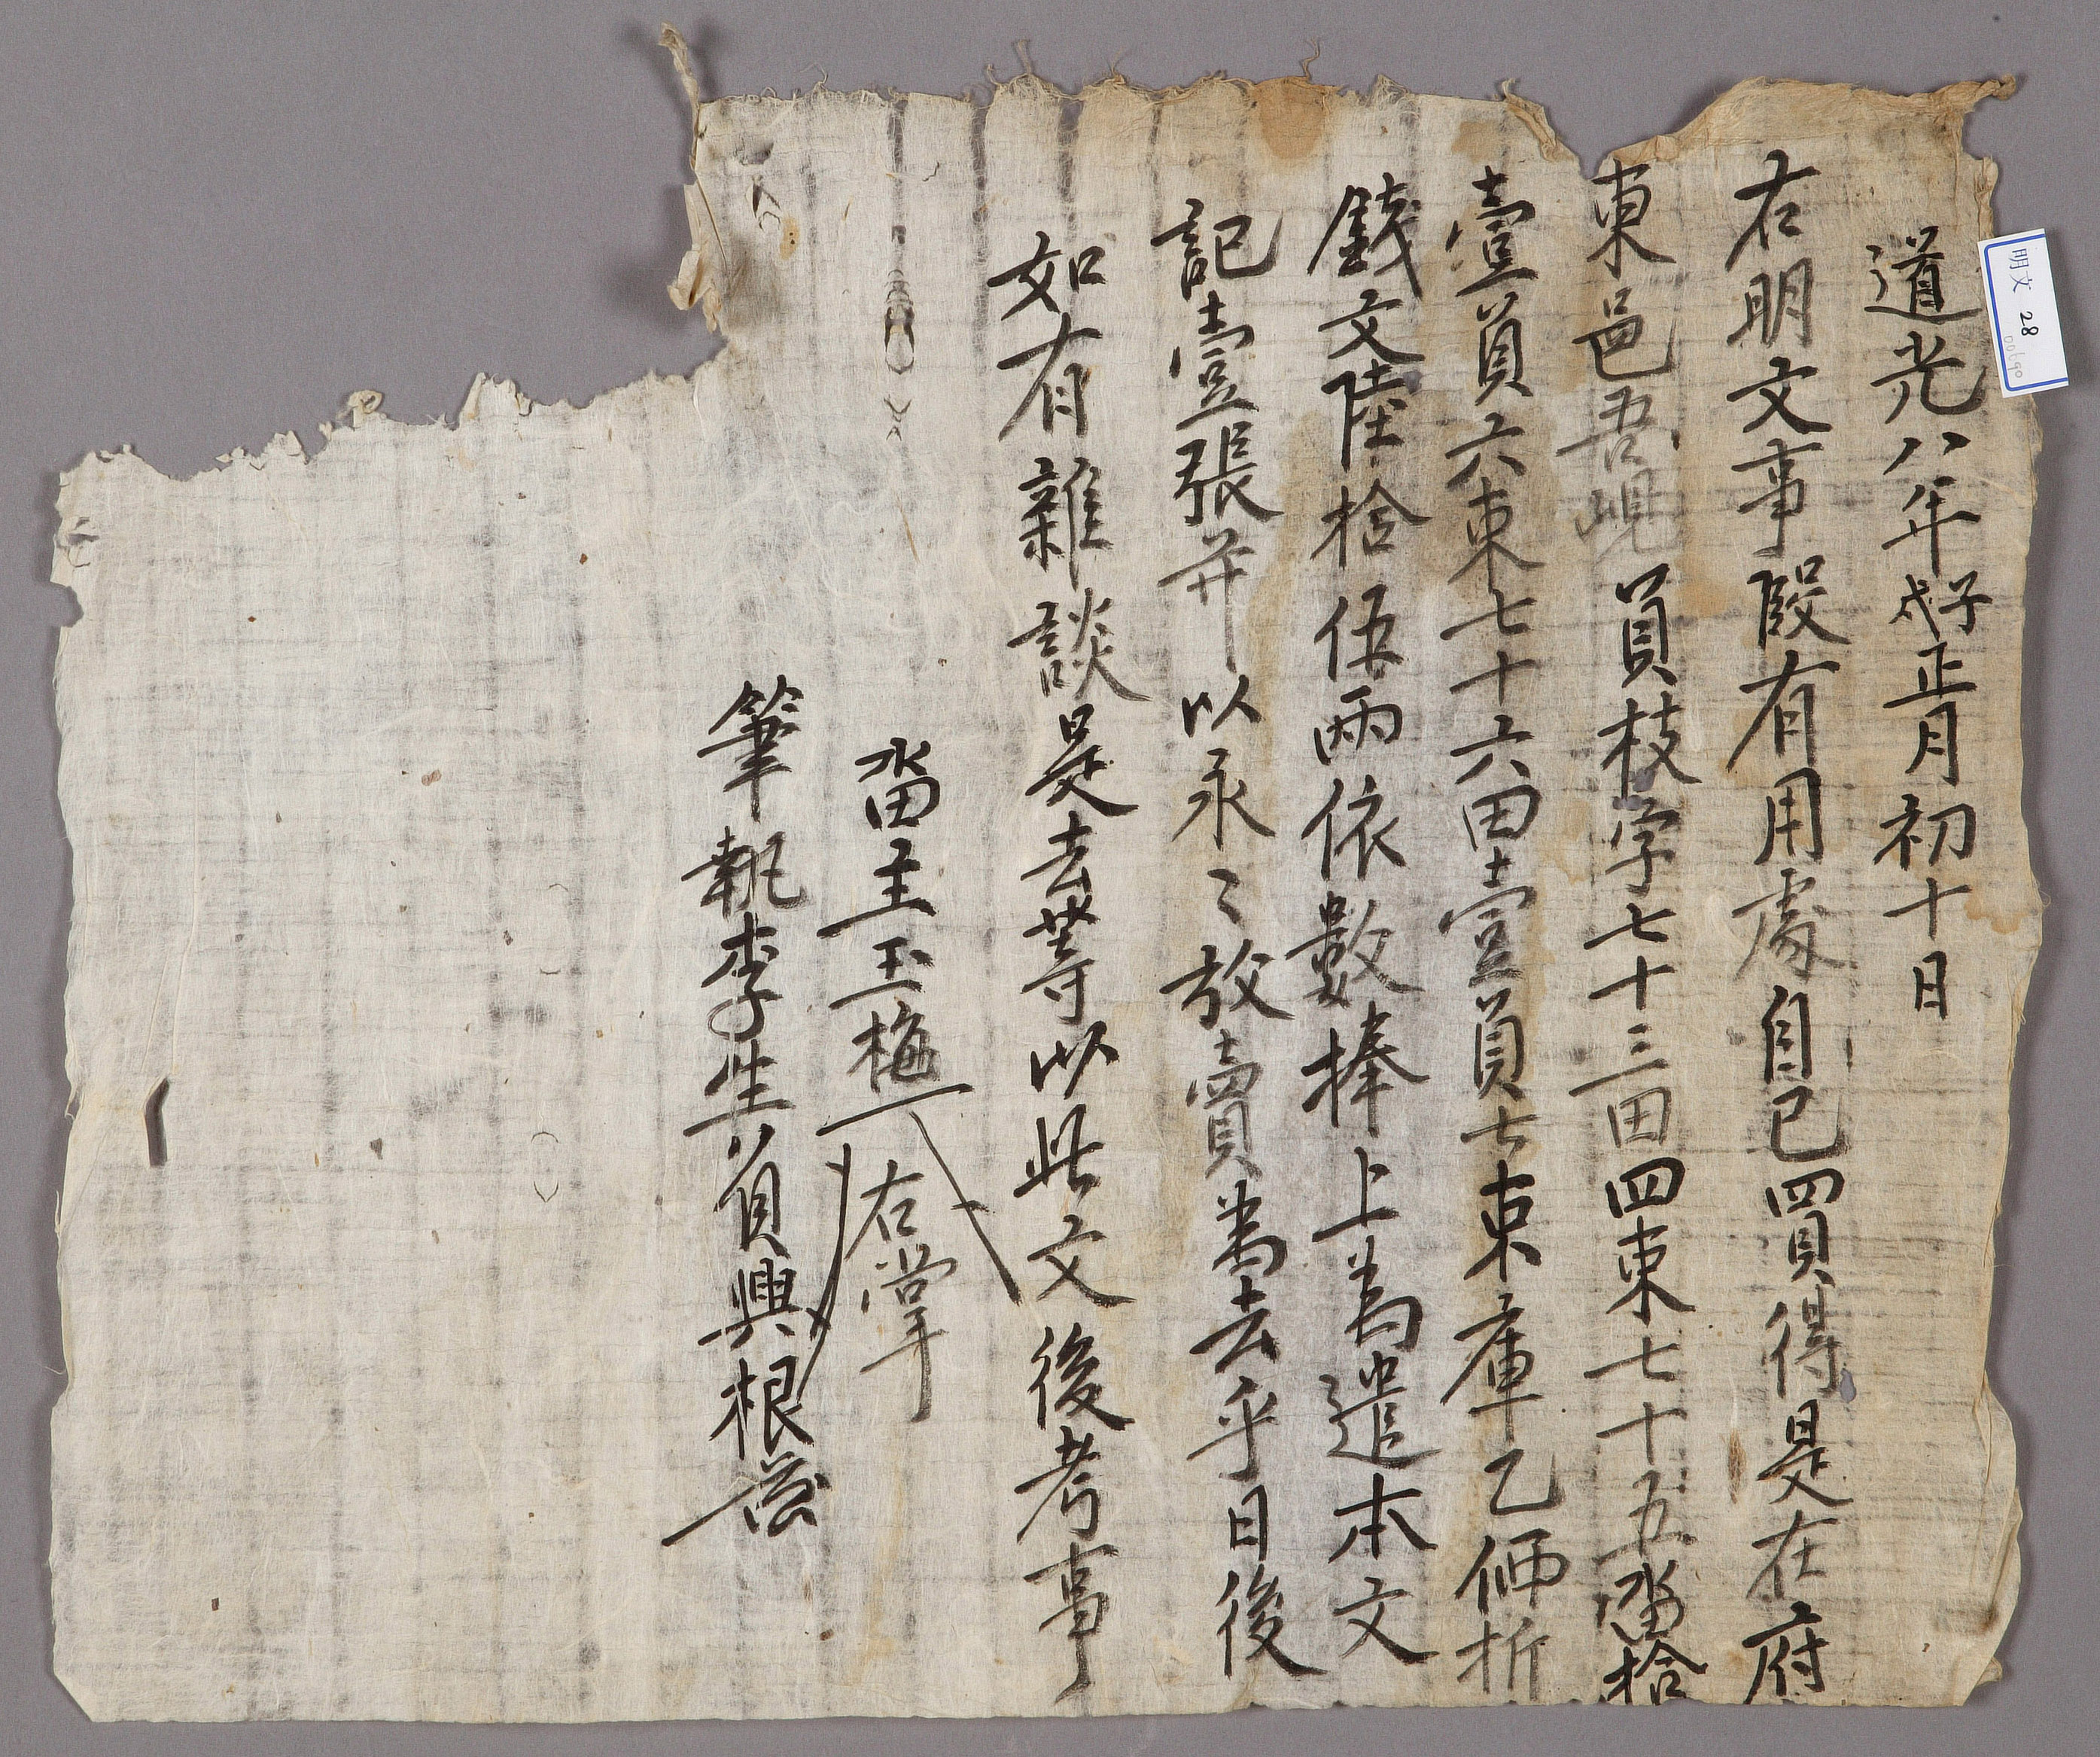 道光八年戊子正月初十日
右明文事段有用處自已買得是在府
東邑吾峴員枝字七十三田四束七十五畓拾
壹負六束七十六田壹負七束庫乙価折
錢文陸拾伍兩依數捧上爲遣本文
記壹張并以永〻放賣爲去乎日後
如有雜談是去等以此文後考事
畓主玉梅 右掌
筆執李生員興根
明文 28
00690